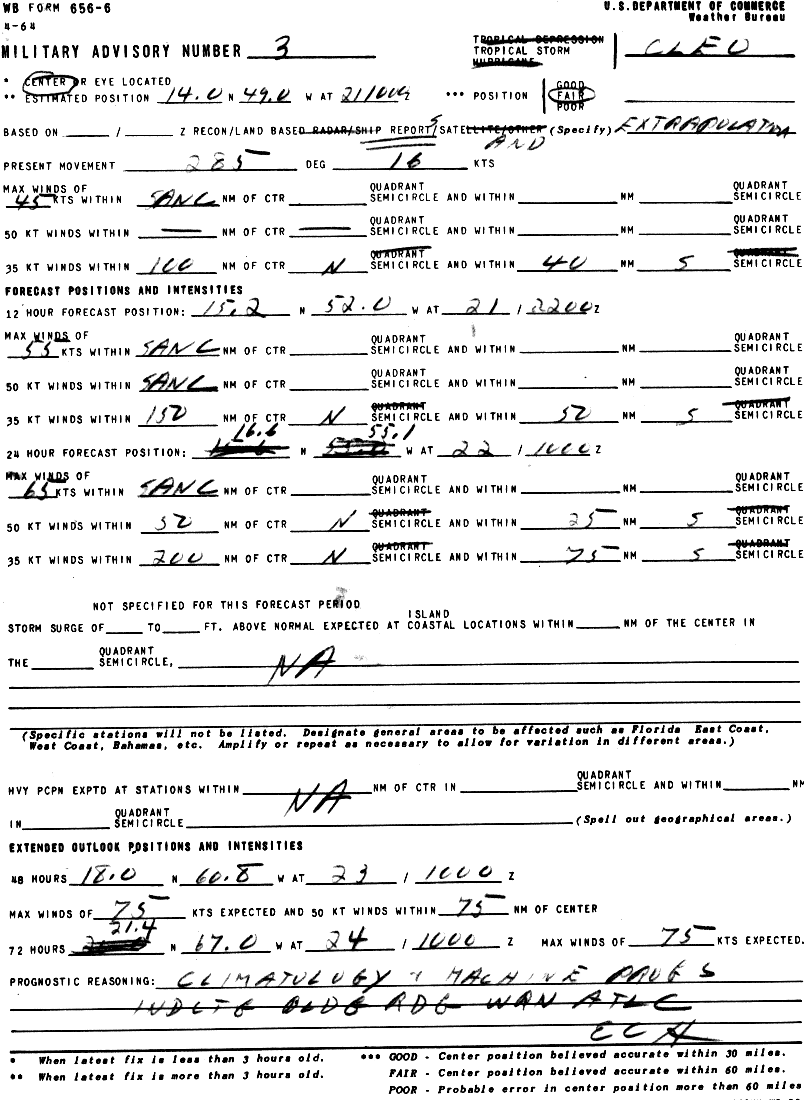 WB FORM 656-6
U.S. DEPARTMENT OF COMMERCE
4-64
Weather Bureau
MILITARY ADVISORY NUMBER 3
TROPICAL DEPRESSION
TROPICAL STORM CLEO
HURRICANE
* CENTER OR EYE LOCATED
** ESTIMATED POSITION 14.0 N 49.0 W AT 21/1000 Z *** POSITION GOOD FAIR POOR
BASED ON / Z RECON/LAND BASED RADAR/SHIP REPORTS/SATELLITE/OTHER (Specify) EXTRAPOLATION
AND
PRESENT MOVEMENT 285 DEG 16 KTS
MAX WINDS OF
45 KTS WITHIN SANC NM OF CTR QUADRANT SEMICIRCLE AND WITHIN NM QUADRANT SEMICIRCLE
50 KT WINDS WITHIN — NM OF CTR — QUADRANT SEMICIRCLE AND WITHIN NM QUADRANT SEMICIRCLE
35 KT WINDS WITHIN 100 NM OF CTR N QUADRANT SEMICIRCLE AND WITHIN 40 NM S QUADRANT SEMICIRCLE
FORECAST POSITIONS AND INTENSITIES
12 HOUR FORECAST POSITION: 15.2 N 52.0 W AT 21 / 2200 Z
MAX WINDS OF
55 KTS WITHIN SANC NM OF CTR QUADRANT SEMICIRCLE AND WITHIN NM QUADRANT SEMICIRCLE
50 KT WINDS WITHIN SANC NM OF CTR QUADRANT SEMICIRCLE AND WITHIN NM QUADRANT SEMICIRCLE
35 KT WINDS WITHIN 150 NM OF CTR N QUADRANT SEMICIRCLE AND WITHIN 50 NM S QUADRANT SEMICIRCLE
24 HOUR FORECAST POSITION: 16.6 N 55.1 W AT 22 / 1000 Z
MAX WINDS OF
65 KTS WITHIN SANC NM OF CTR QUADRANT SEMICIRCLE AND WITHIN NM QUADRANT SEMICIRCLE
50 KT WINDS WITHIN 50 NM OF CTR N QUADRANT SEMICIRCLE AND WITHIN 25 NM S QUADRANT SEMICIRCLE
35 KT WINDS WITHIN 200 NM OF CTR N QUADRANT SEMICIRCLE AND WITHIN 75 NM S QUADRANT SEMICIRCLE
NOT SPECIFIED FOR THIS FORECAST PERIOD
STORM SURGE OF TO FT. ABOVE NORMAL EXPECTED AT ISLAND COASTAL LOCATIONS WITHIN NM OF THE CENTER IN
THE QUADRANT SEMICIRCLE, NA
(Specific stations will not be listed. Designate general areas to be affected such as Florida East Coast,
West Coast, Bahamas, etc. Amplify or repeat as necessary to allow for variation in different areas.)
HVY PCPN EXPTD AT STATIONS WITHIN NA NM OF CTR IN QUADRANT SEMICIRCLE AND WITHIN NM
IN QUADRANT SEMICIRCLE (Spell out geographical areas.)
EXTENDED OUTLOOK POSITIONS AND INTENSITIES
48 HOURS 18.0 N 60.8 W AT 23 / 1000 Z
MAX WINDS OF 75 KTS EXPECTED AND 50 KT WINDS WITHIN 75 NM OF CENTER
72 HOURS 21.4 N 67.0 W AT 24 / 1000 Z MAX WINDS OF 75 KTS EXPECTED.
PROGNOSTIC REASONING: CLIMATOLOGY + MACHINE PROGS
INDCTE BLDG RDG WRN ATLC
* When latest fix is less than 3 hours old. *** GOOD - Center position believed accurate within 30 miles.
** When latest fix is more than 3 hours old. FAIR - Center position believed accurate within 60 miles.
POOR - Probable error in center position more than 60 miles